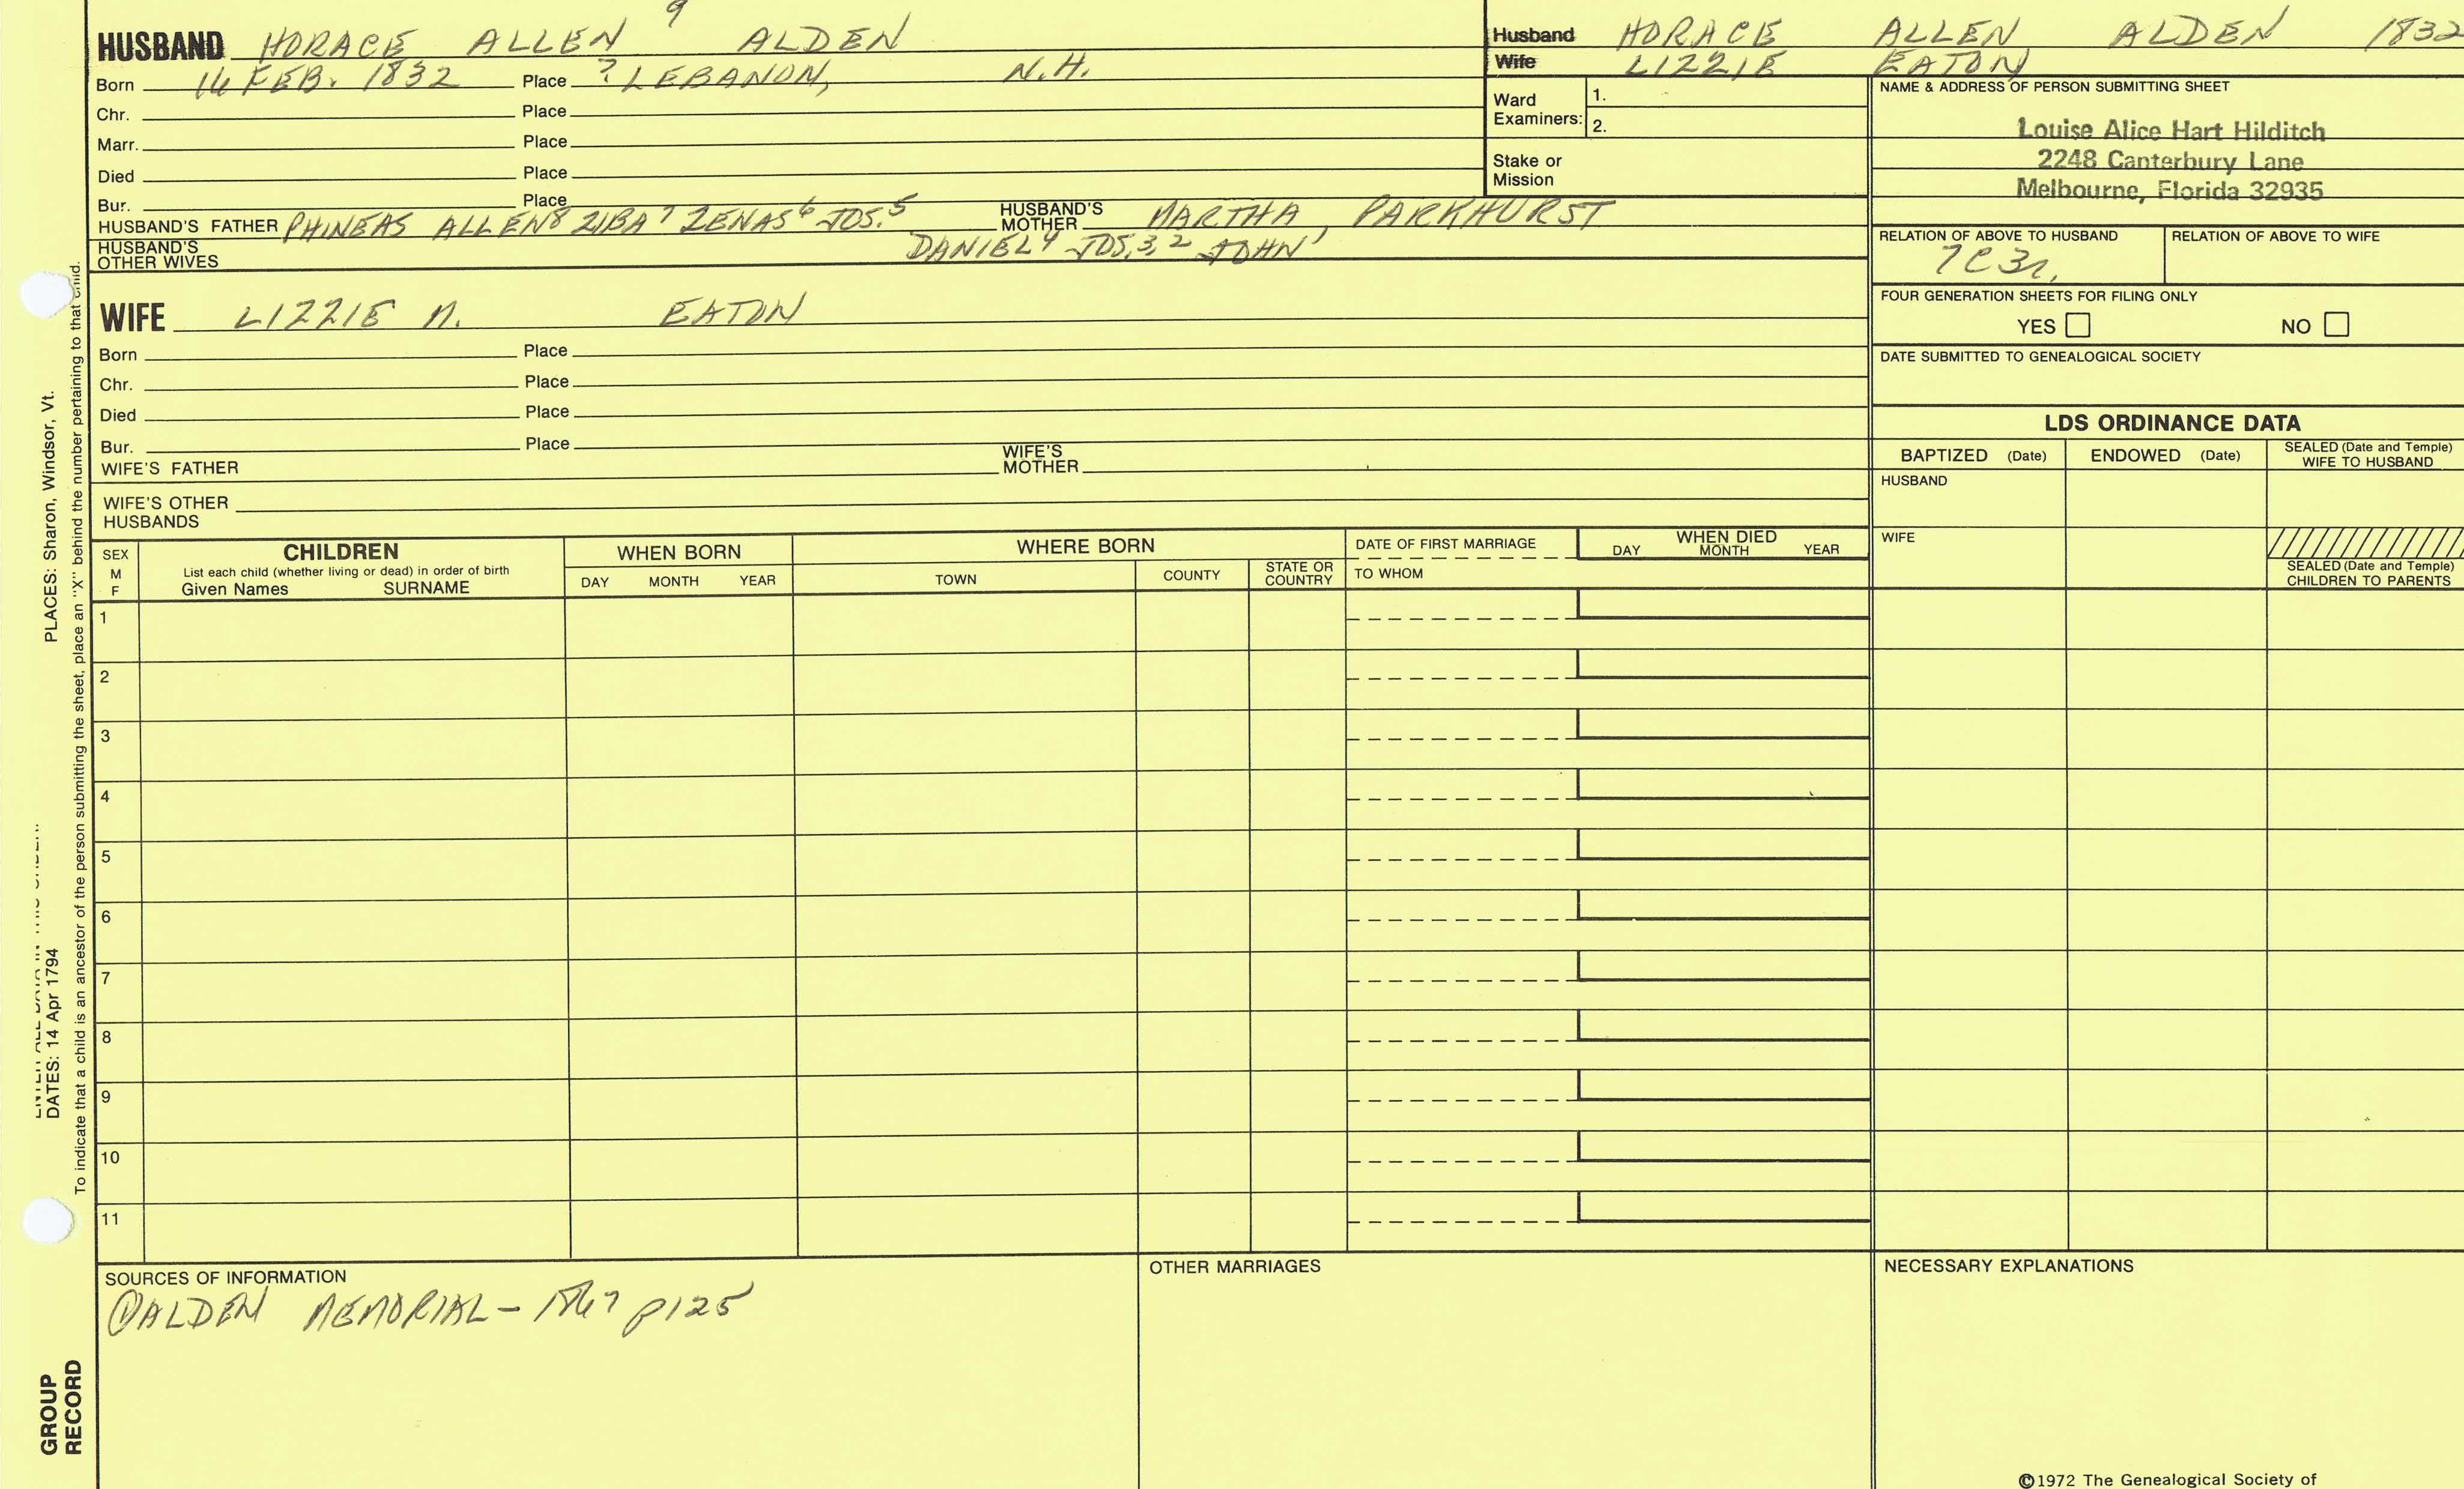 HUSBAND HORACE ALLEN 9 ALDEN
Born 14 FEB. 1832 Place ? LEBANON, N.H.
Chr. Place
Marr. Place
Died Place
Bur. Place
HUSBAND'S FATHER PHINEAS ALLEN 8 ZIBA 7 ZENAS 6 JOS. 5 HUSBAND'S MOTHER MARTHA PARKHURST
HUSBAND'S OTHER WIVES DANIEL 4 JOS. 3, 2 JOHN 1
Husband HORACE ALLEN ALDEN 1832
Wife LIZZIE EATON
Ward Examiners: 1.
2.
Stake or Mission
NAME & ADDRESS OF PERSON SUBMITTING SHEET
Louise Alice Hart Hilditch
2248 Canterbury Lane
Melbourne, Florida 32935
RELATION OF ABOVE TO HUSBAND RELATION OF ABOVE TO WIFE
7C3r,
FOUR GENERATION SHEETS FOR FILING ONLY
YES NO
DATE SUBMITTED TO GENEALOGICAL SOCIETY
WIFE LIZZIE M. EATON
Born Place
Chr. Place
Died Place
Bur. Place
WIFE'S FATHER WIFE'S MOTHER
WIFE'S OTHER HUSBANDS
LDS ORDINANCE DATA
BAPTIZED (Date) ENDOWED (Date) SEALED (Date and Temple) WIFE TO HUSBAND
HUSBAND
WIFE
SEALED (Date and Temple) CHILDREN TO PARENTS
SEX M F
CHILDREN
List each child (whether living or dead) in order of birth
Given Names SURNAME
WHEN BORN
DAY MONTH YEAR
WHERE BORN
TOWN COUNTY STATE OR COUNTRY
DATE OF FIRST MARRIAGE
TO WHOM
WHEN DIED
DAY MONTH YEAR
1
2
3
4
5
6
7
8
9
10
11
SOURCES OF INFORMATION
① ALDEN MEMORIAL - 1867 p125
OTHER MARRIAGES
NECESSARY EXPLANATIONS
©1972 The Genealogical Society of
PLACES: Sharon, Windsor, Vt.
DATES: 14 Apr 1794
To indicate that a child is an ancestor of the person submitting the sheet, place an "X" behind the number pertaining to that child.
GROUP
RECORD